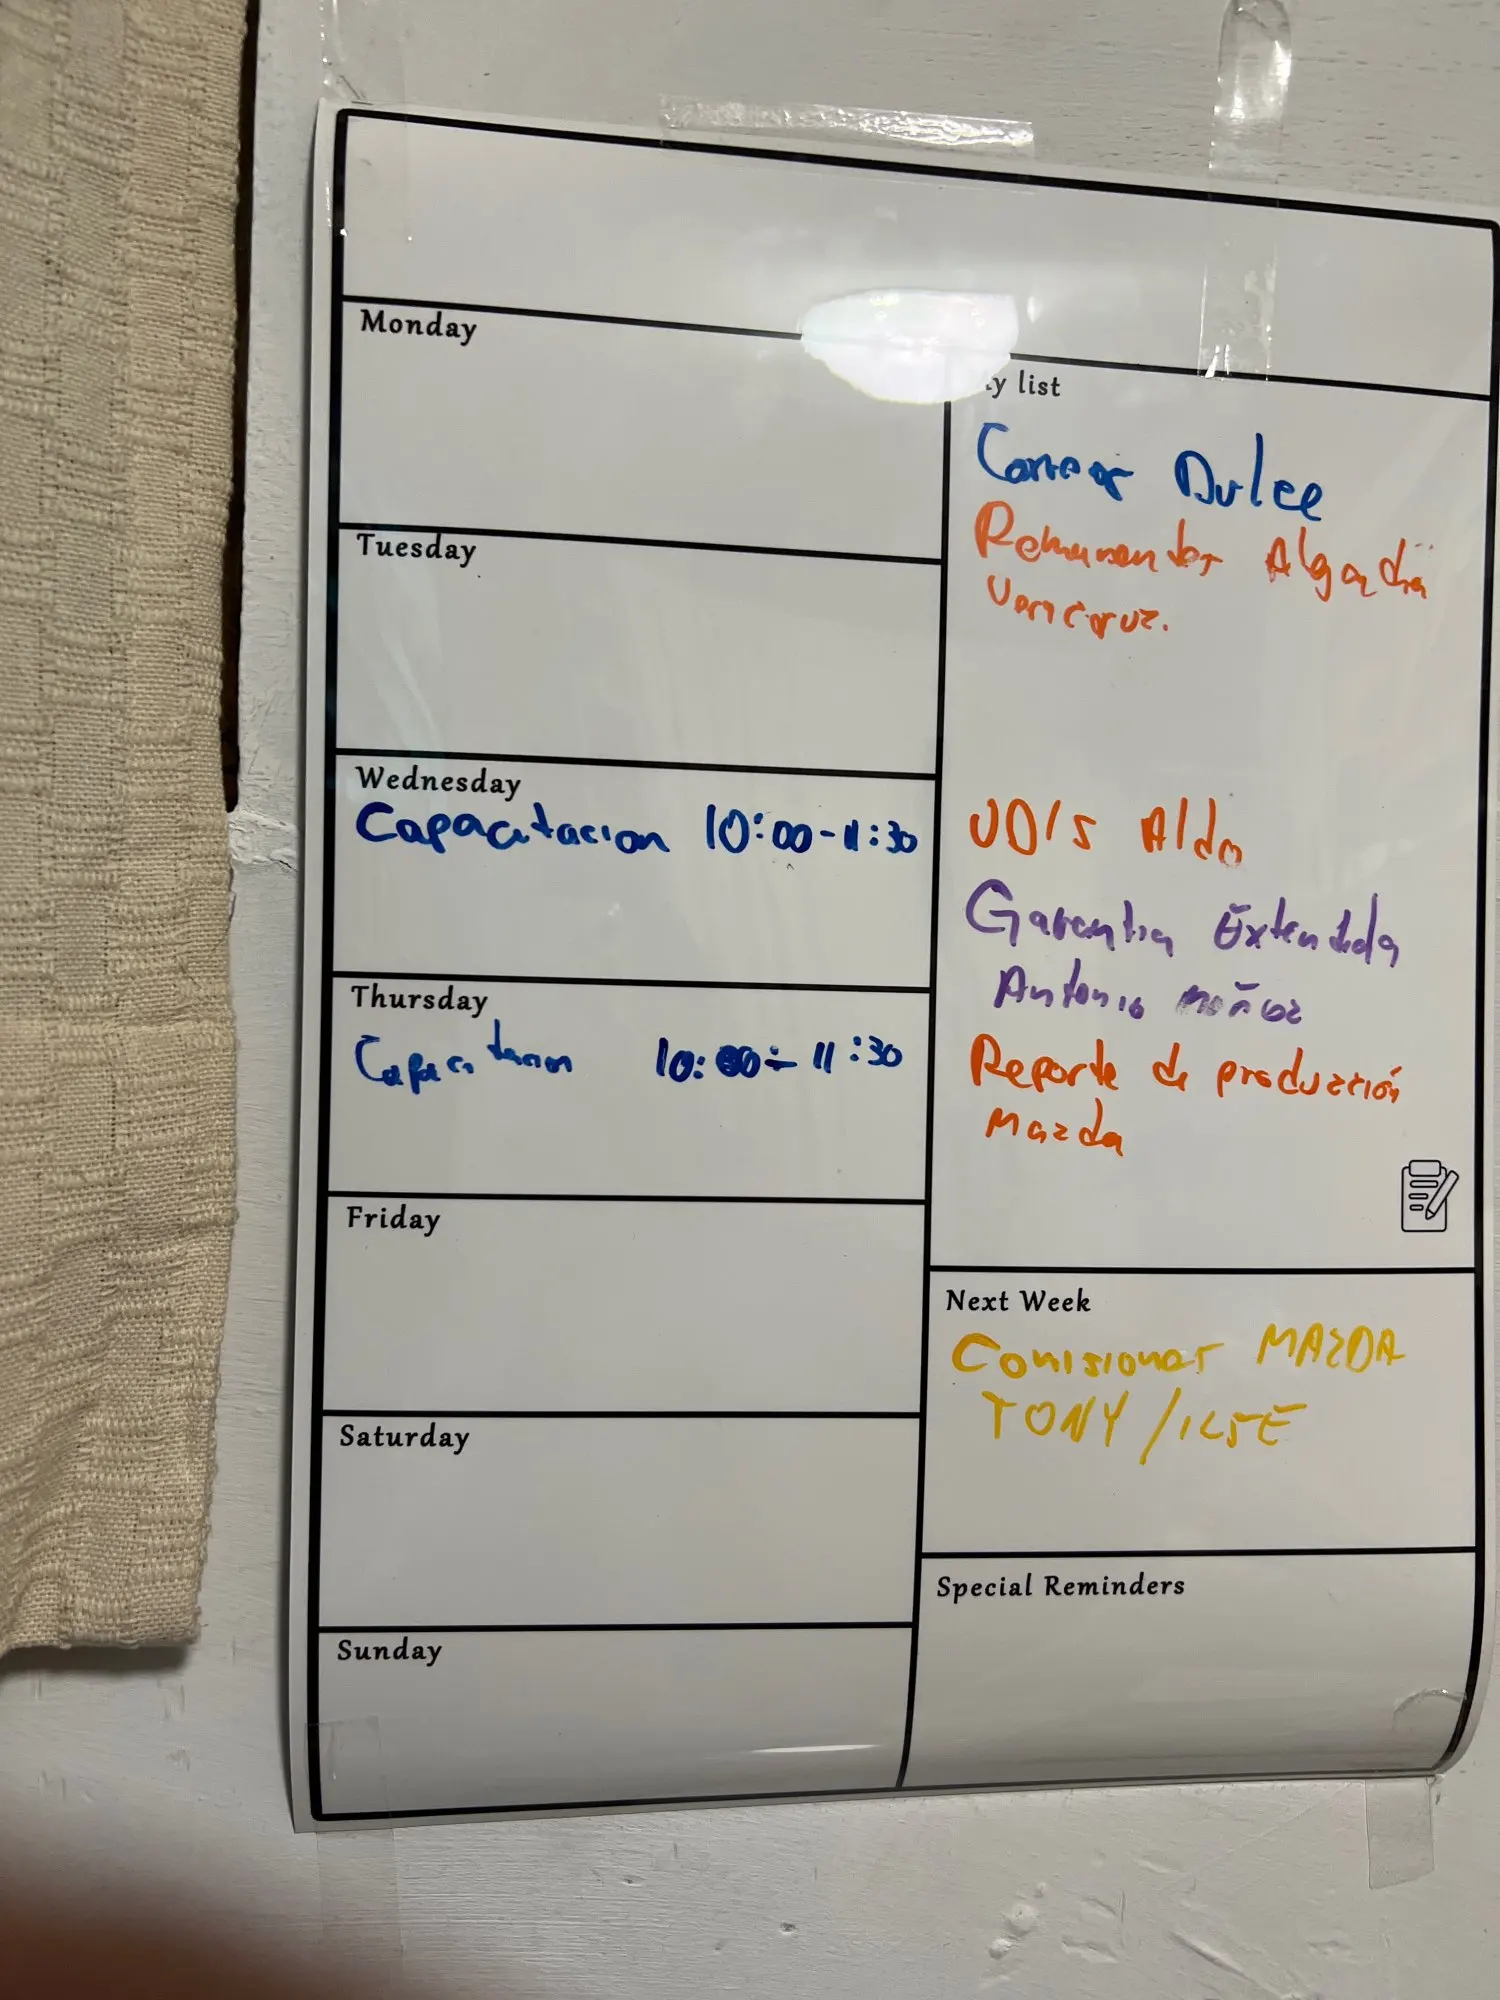 Monday
Tuesday
Wednesday
Capacitacion 10:00-11:30
Thursday
Capacitacion 10:00-11:30
Friday
Saturday
Sunday
y list
Dulce
Veracruz.
UDIS Aldo
Garantia Extendida
Antonio Muñoz
Reporte de producción
Mazda
Next Week
Comisiones MAZDA
TONY / ILSE
Special Reminders